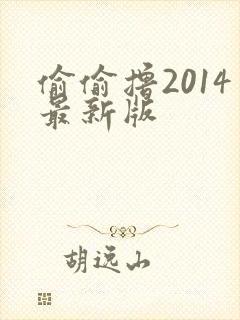 偷偷撸2014
最新版
胡远山